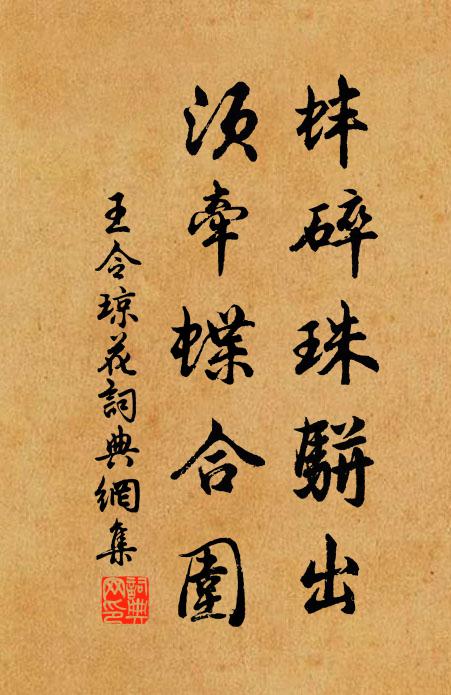 蚌碎珠駢出
須牽蝶合圍
王令琼花詞典網集
詞典網印